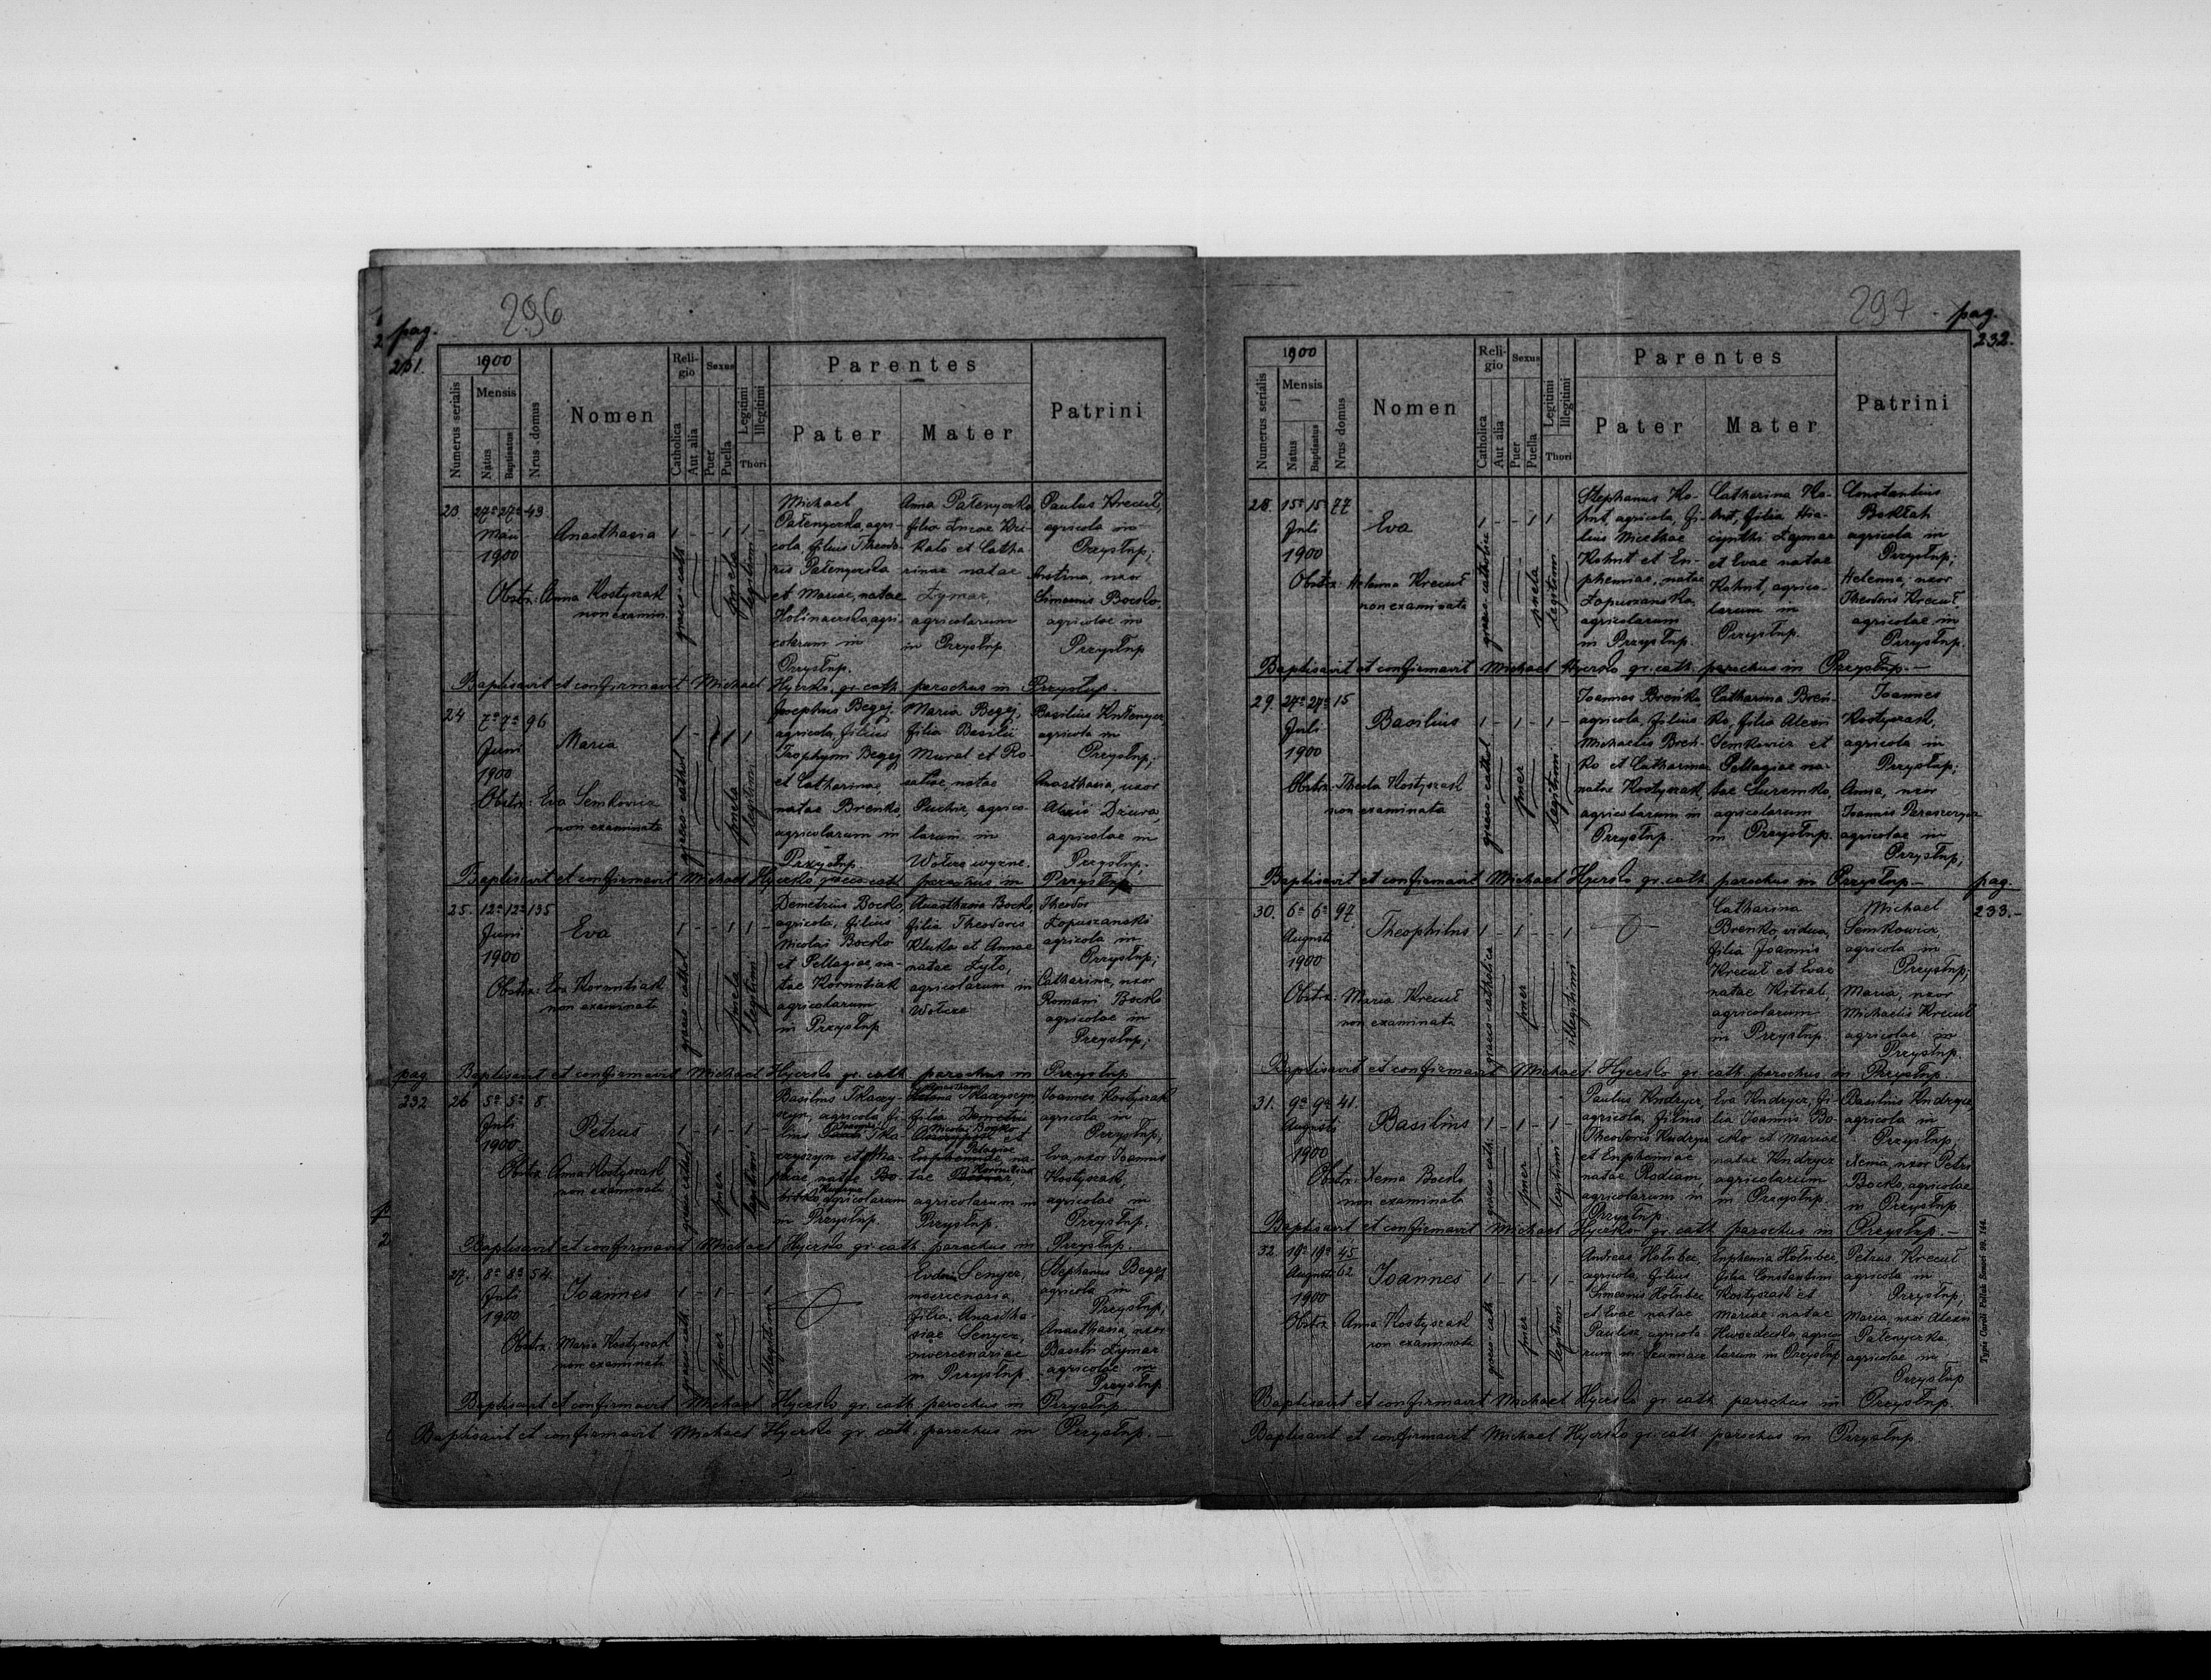 296
pag.
231.
1900
Numerus serialis
Mensis
Natus
Baptisatus
Nrus domus
Nomen
Reli-
gio
Catholica
Aut alia
Sexus
Puer
Puella
Legitimi
Illegitimi
Thori
Parentes
Pater
Mater
Patrini
23. 27a 27a 43
Maii
1900
Anasthasia
Obstr: Anna Kostyszak
non examin.
graeco-cath
puela
legitimi
Michael
Pałenyczka, agri-
cola, filius Theodo-
ris Pałenyczka
et Mariae, natae
agri-
colarum in
Przysłup.
Anna Pałenyczka
filia Lucae
et Catha
rinae natae
Żymar,
agricolarum
in Przysłup
Paulus Krecuł,
agricola in
Przysłup;
uxor
Simeonis Bocko,
agricolae in
Przysłup
Baptisavit et confirmavit Michael Hyćrko gr. cath. parochus in Przysłup.
24 7a 7a 96
Juni
1900
Maria
Obstr: Eva Semkowicz
non examinata
graeco-cathol
puela
legitimi
Josephus Begej,
agricola, filius
Trophymi Begej
et Catharinae
natae Breńko,
agricolarum in
Przysłup
Maria Begej,
filia Basilii
Mural et Ro-
saliae, natae
Puchir, agrico-
larum in
Wołcze wyżne.
Basilius Kułenycz,
agricola in
Przysłup;
Anasthasia, uxor
Alexii Dziura,
agricolae in
Przysłup.
Baptisavit et confirmavit Michael Hyćrko graeco cath parochus in Przysłup
25. 12a 12a 135
Juni
1900
Eva
Obstr: Eva Kornutiak
non examinata
graeco cathol
puela
legitimi
Demetrius Bocko,
agricola, filius
Nicolai Bocko
et Pellagiae, na-
tae Kornutiak
agricolarum
in Przysłup
Anasthasia Bocko,
filia Theodoris
Kluka et Annae
natae Żyto,
agricolarum in
Wołcze
Theodor
Łopuszanski
agricola in
Przysłup;
Catharina, uxor
Romani Bocko
agricolae in
Przysłup;
Baptisavit et confirmavit Michael Hyćrko gr. cath. parochus in Przysłup
pag
232
26 5a 5a 8.
Juli
1900
Petrus
Obstr: Anna Kostyszak
non examinata
graeco cathol
puer
legitimi
Basilius Tkaczy-
szyn, agricola, fi-
lius Tka
czyszyn et Ma-
riae natae Bo-
agricolarum
in Przysłup.
Tkaczyszyn
filia Demetrii
Nicolai Bocko
et
Pelagiae, na-
tae
Kornutiak
agricolarum in
Przysłup.
Ioannes Kostyszak
agricola in
Przysłup;
Eva, uxor Ioannis
Kostyszak,
agricolae in
Przysłup.
Baptisavit et confirmavit Michael Hyćrko gr. cath. parochus in Przysłup.
27. 8a 8a 54.
Juli
1900
Ioannes
Obstr: Maria Kostyszak
non examinata
graeco-cath.
puer
illegitimi
Senycz,
mercenaria,
filia Anastha-
siae Senycz,
mercenariae
in Przysłup.
Stephanus Begej
agricola in
Przysłup;
Anasthasia, uxor
Basilii Żymar
agricolae in
Przysłup
Baptisavit et confirmavit Michael Hyćrko gr. cath. parochus in Przysłup
Baptisavit et confirmavit Michael Hyćrko gr. cath. parochus in Przysłup. —
297
pag.
232.
1900
Numerus serialis
Mensis
Natus
Baptisatus
Nrus domus
Nomen
Reli-
gio
Catholica
Aut alia
Sexus
Puer
Puella
Legitimi
Illegitimi
Thori
Parentes
Pater
Mater
Patrini
28. 15a 15 77
Juli
1900
Eva
Obstr: Helenna Krecuł
non examinata
graeco catholica
puela
legitimi
Stephanus Ko-
hut, agricola, fi-
lius Micehae
Kohut et Eu-
phemiae, natae
Łopuszanska,
agricolarum
in Przysłup.
Catharina Ko-
hut, filia Hia-
cynthi Żymar
et Evae natae
Kohut, agrico-
larum in
Przysłup.
Constantius
agricola in
Przysłup;
Helenna, uxor
Theodoris Krecuł,
agricolae in
Przysłup.
Baptisavit et confirmavit Michael Hyćrko gr. cath. parochus in Przysłup. —
29. 27a 27a 15
Juli
1900
Basilius
Obstr. Thecla Kostyszak
non examinata
graeco-cathol.
puer
legitimi
Ioannes Breńko,
agricola, filius
Michaelis Breń-
ko et Catharinae
natae Kostyszak,
agricolarum in
Przysłup.
Catharina Breń-
ko, filia Alexii
Semkowicz et
Pellagiae na-
tae
agricolarum
in Przysłup.
Ioannes
Kostyszak,
agricola in
Przysłup;
Anna, uxor
Ioannis
agricolae in
Przysłup;
Baptisavit et confirmavit Michael Hyćrko gr. cath. parochus in Przysłup —
pag.
233.-
30. 6a 6a 97
Augusti
1900
Theophilus
Obstr: Maria Krecuł
non examinata
graeco-catholica
puer
illegitimi
Catharina
Breńko, vidua,
filia Joannis
Krecuł et Evae
natae Kitral,
agricolarum
in Przysłup.
Michael
Semkowicz,
agricola in
Przysłup;
Maria, uxor
Michaelis Krecuł
agricolae in
Przysłup.
Baptisavit et confirmavit Michael Hyćrko gr. cath. parochus in Przysłup.
31. 9a 9a 41.
Augusti
1900
Basilius
Obstr: Xenia Bocko
non examinata
graeco-cath.
puer
legitimi
Paulus Kudrycz,
agricola, filius
Theodoris Kudrycz
et Eupheniae
natae Rodiam,
agricolarum in
Przysłup
Eva Kudrycz, fi-
lia Ioannis Bo-
cko et Mariae
natae Kudrycz
agricolarum
in Przysłup.
Basilius Kudrycz,
agricola in
Przysłup;
Xenia, uxor Petri
Bocko, agricolae
in Przysłup
Baptisavit et confirmavit Michael Hyćrko gr. cath. parochus in Przysłup. —
32. 19a 19a 45
Augusti 62
1900
Ioannes
Obstr: Anna Kostyszak
non examinata
graeco-cath
puer
legitimi
Andreas Hołubec,
agricola, filius
Simeonis Hołubec
et Evae natae
agricola-
rum in
Euphemia Hołubec,
filia Constantini
Kostyszak et
Mariae natae
agrico-
larum in Przysłup
Petrus Krecuł
agricola in
Przysłup;
Maria, uxor Alexii
Pałenyczka,
agricolae in
Przysłup
Baptisavit et confirmavit Michael Hyćrko gr. cath. parochus in Przysłup.
Baptisavit et confirmavit Michael Hyćrko gr. cath. parochus in Przysłup.
Typis Caroli Pollak Sanoci 99. 144.